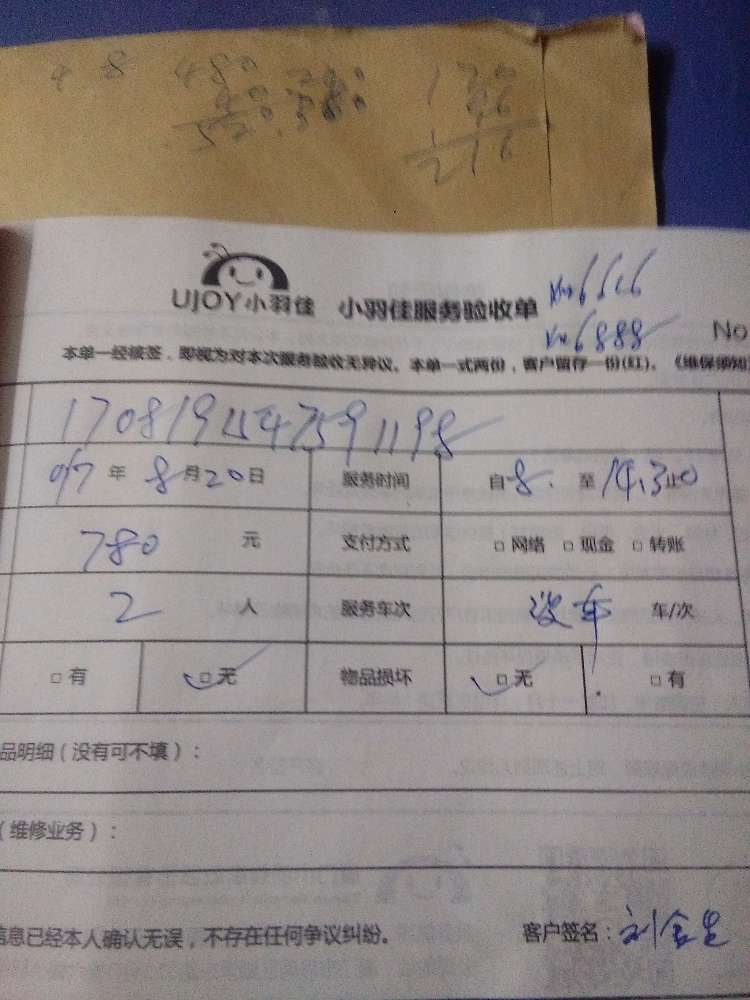 4 8 480
1216
UJOY小羽佳 小羽佳服务验收单 No6616
No6888 No
本单一经被签，即视为对本次服务验收无异议。本单一式两份，客户留存一份(红)。《维保须知
1708191547591198
017年 8月20日 服务时间 自8. 至14.30止
780 元 支付方式 □网络 □现金 □转账
2 人 服务车次 没车 车/次
□有 □无 物品损坏 □无 □有
品明细（没有可不填）：
（维修业务）：
信息已经本人确认无误，不存在任何争议纠纷。 客户签名：刘金生